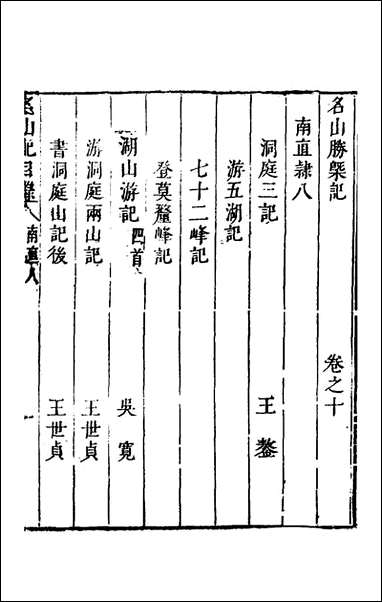 名山勝槩記 卷之十
南直隷八
洞庭三記 王鏊
游五湖記
七十二峰記
登莫釐峰記
湖山游記 四首 吳寬
游洞庭兩山記 王世貞
書洞庭山記後 王世貞
名山記目錄 南直八